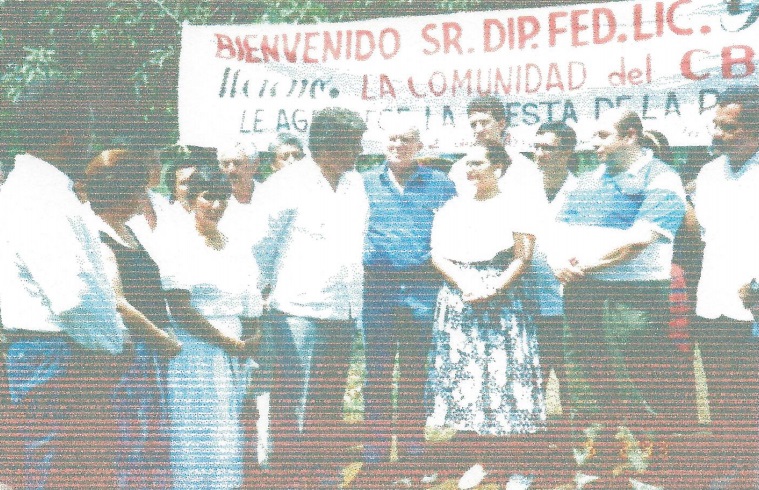 BIENVENIDO SR. DIP. FED. LIC.
LA COMUNIDAD del CB
LE AG LA ESTA DE LA P